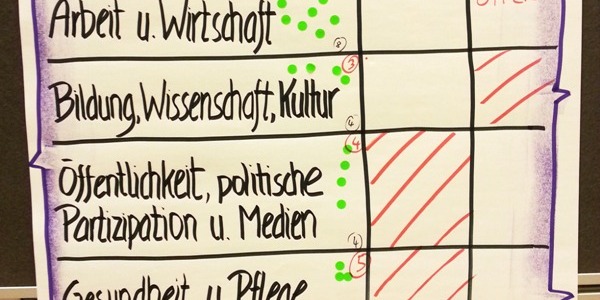 Offen
Arbeit u. Wirtschaft
8
3
Bildung, Wissenschaft, Kultur
4
4
Öffentlichkeit, politische
Partizipation u. Medien
4
5
Gesundheit u. Pflege